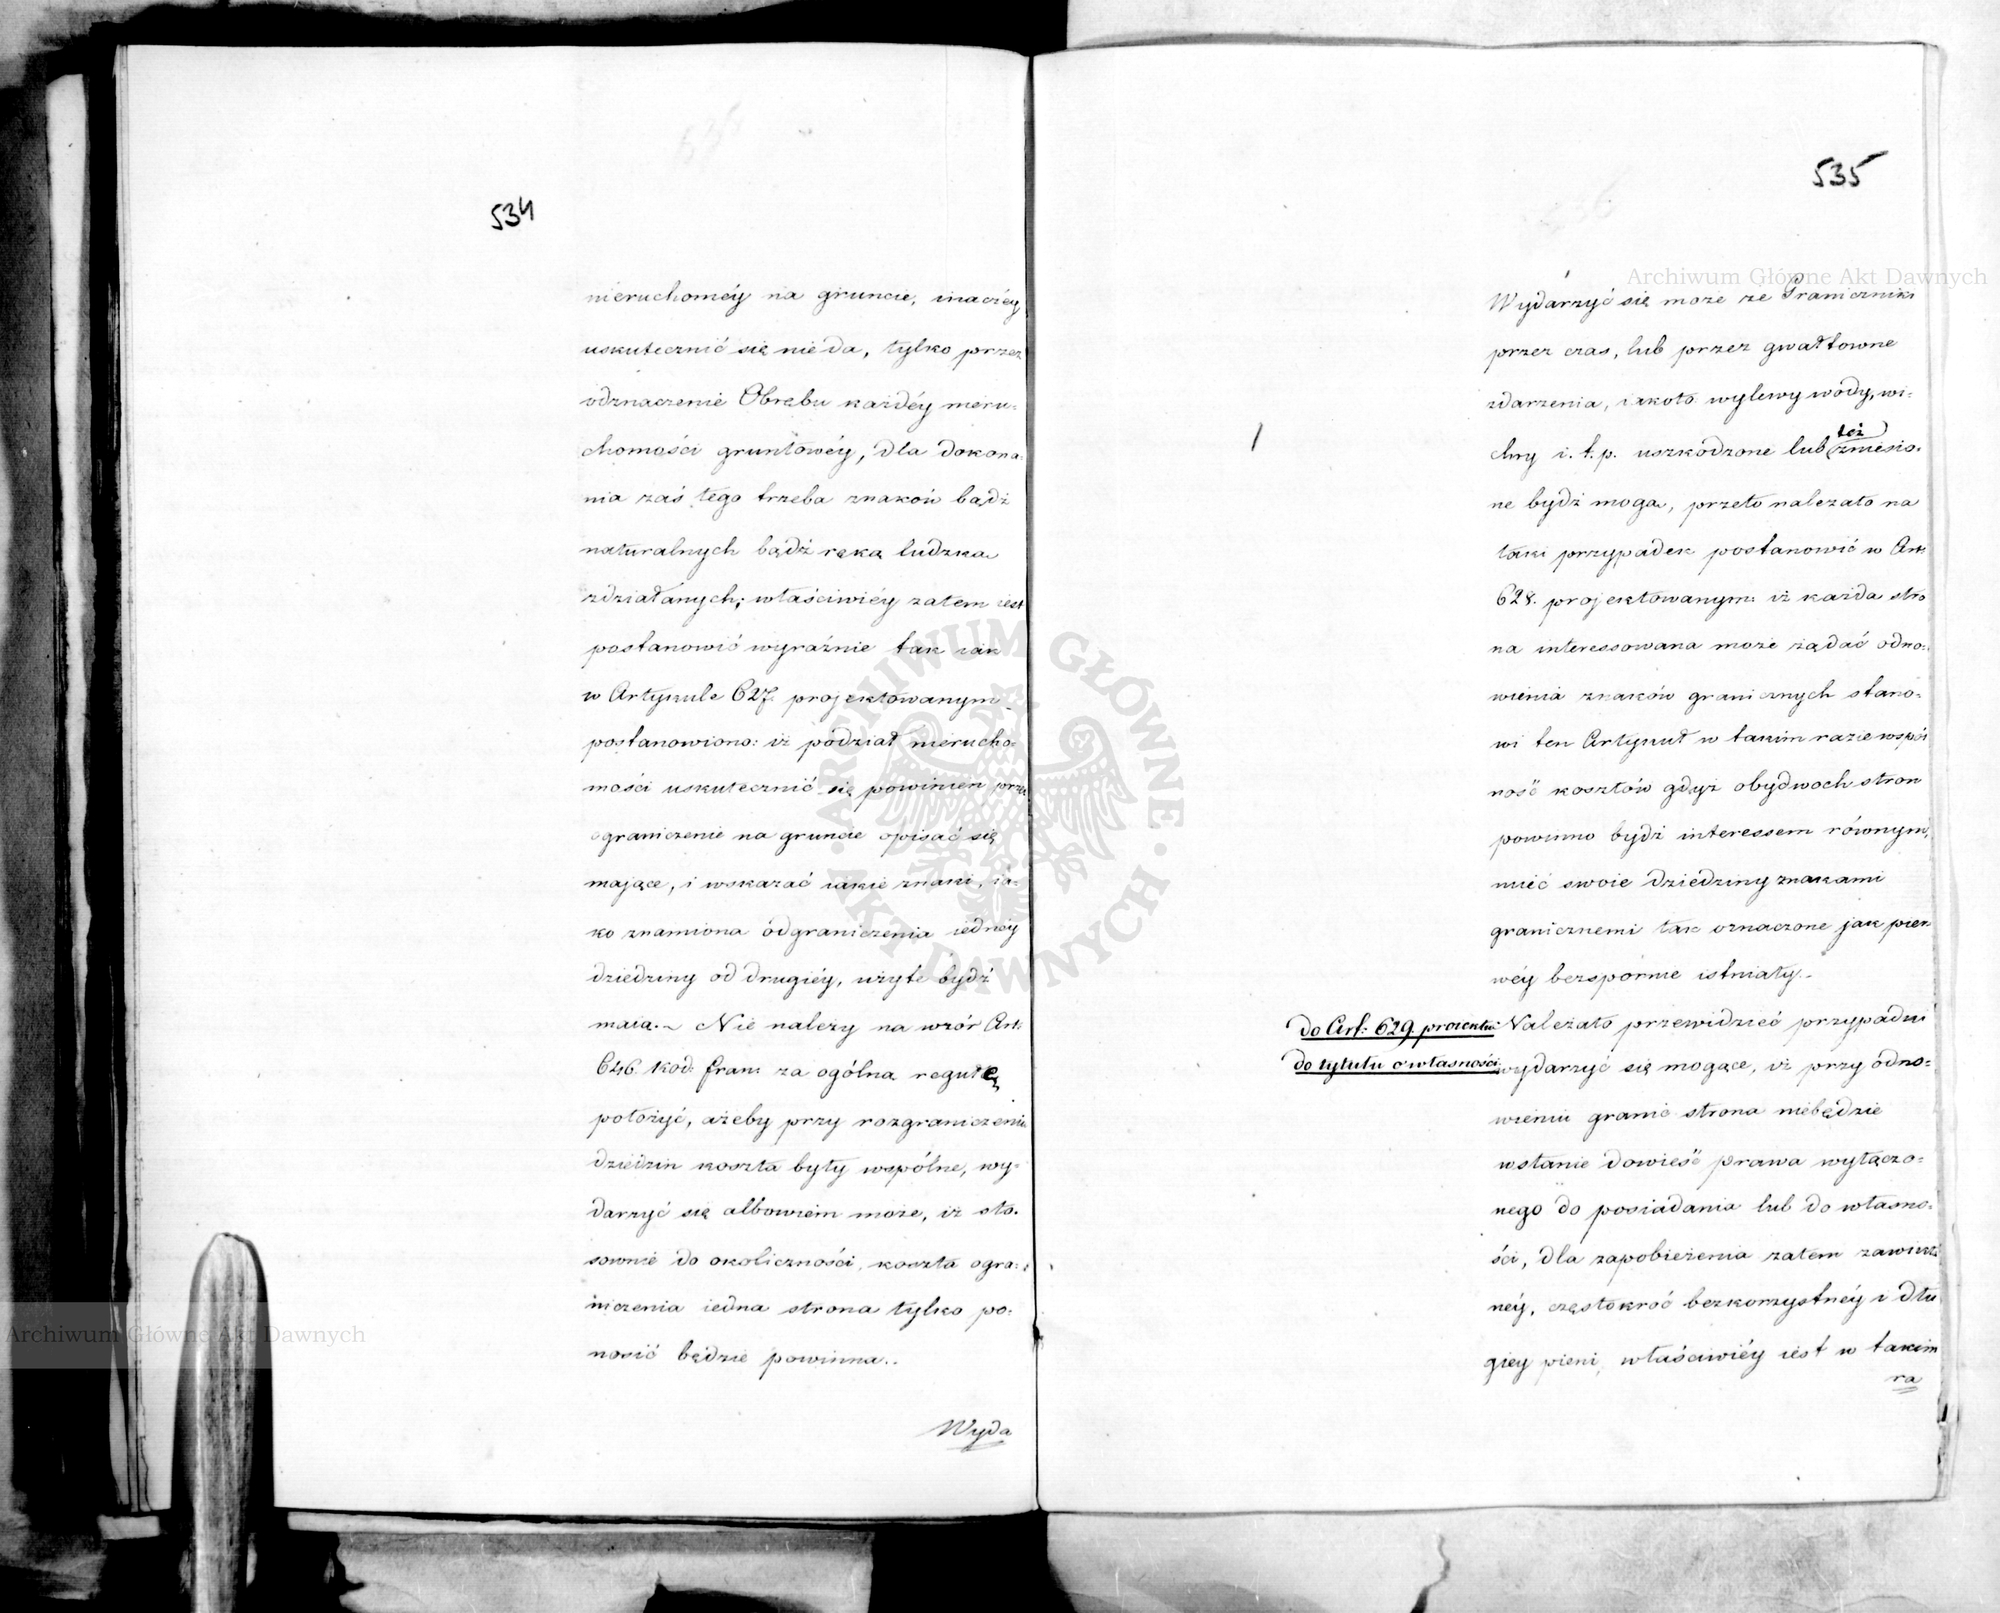 534
nieruchoméy na gruncie, inaczéy
uskutecznić się nie da, tylko przez
odznaczenie Obrębu każdéy nieru-
chomości gruntowéy, dla dokona-
nia zaś tego trzeba znaków bądź
naturalnych bądź ręką ludzką
zdziałanych; właściwiéy zatem iest
postanowić wyraźnie tak iak
w Artykule 627. projektowanym
postanowiono: iż podział nierucho-
mości uskutecznić się powinien przez
ograniczenie na gruncie opisać się
mające, i wskazać iakie znaki, ia-
ko znamiona odgraniczenia iednéy
dziedziny od drugiéy, użyte bydź
maią.~ Nie należy na wzór Art:
646. kod: fran: za ogólną regułę
położyć, ażeby przy rozgraniczeniu
dziedzin koszta były wspólne, wy-
darzyć się albowiem może, iż sto-
sownie do okoliczności, koszta ogra-
niczenia iedna strona tylko po-
nosić będzie powinna..
Wyda
535
Wydarzyć się może że Graniczniki
przez czas, lub przez gwałtowne
zdarzenia, iakoto wylewy wody, wi-
chry i. t. p. uszkodzone lub też zniesio-
ne bydź mogą, przeto należało na
taki przypadek postanowić w Art:
628. projektowanym: iż każda stro
na interessowana może żądać odno-
wienia znaków granicznych stano-
wi ten Artykuł w takim razie wspól
ność kosztów gdyż obydwoch stron
powinno bydź interessem równym,
mieć swoie dziedziny znakami
granicznemi tak oznaczone jak pier
wéy bezspornie istniały.-
do Art: 629. proiektu
do tytułu o własności
Należało przewidzieć przypadki
wydarzyć się mogące, iż przy odno-
wieniu granic strona niebędzie
wstanie dowieść prawa wyłączo-
nego do posiadania lub do własno-
ści, dla zapobieżenia zatem zawikła
néy, częstokroć bezkorzystnéy i dłu
giey pieni, właściwiéy iest w takim
ra
Archiwum Główne Akt Dawnych
ARCHIWUM GŁÓWNE AKT DAWNYCH
Archiwum Główne Akt Dawnych